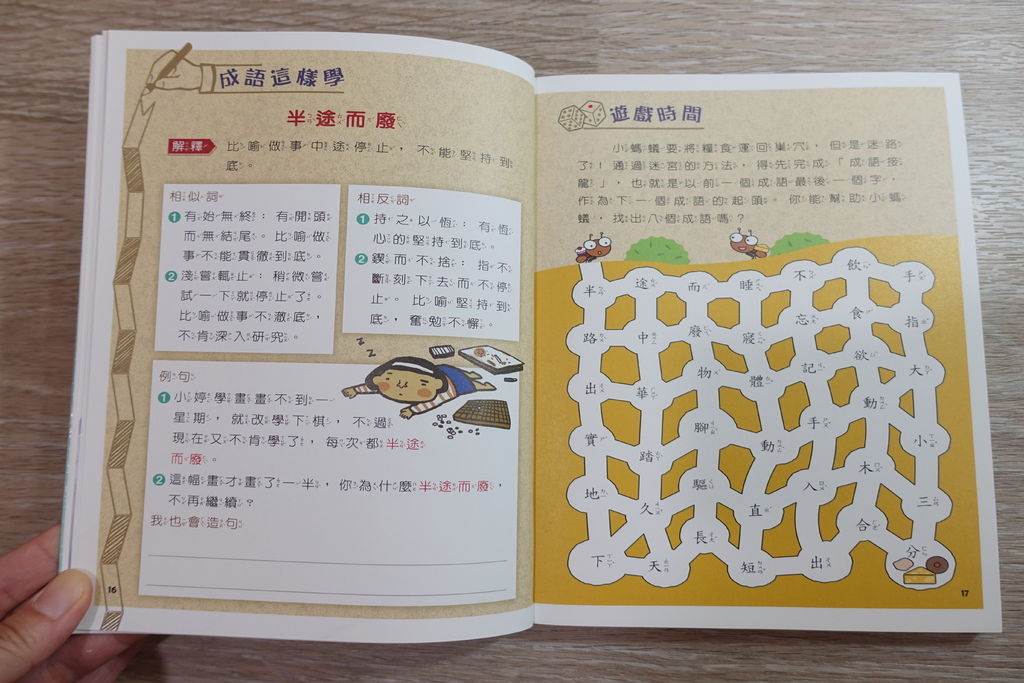 成語這樣學
半途而廢
解釋 比喻做事中途停止，不能堅持到
底。
相似詞
1 有始無終：有開頭
而無結尾。比喻做
事不能貫徹到底。
2 淺嘗輒止：稍微嘗
試一下就停止了。
比喻做事不澈底，
不肯深入研究。
相反詞
1 持之以恆：有恆
心的堅持到底。
2 鍥而不捨：指不
斷刻下去而不停
止。比喻堅持到
底，奮勉不懈。
例句
1 小婷學畫畫不到一
星期，就改學下棋，不過
現在又不肯學了，每次都半途
而廢。
2 這幅畫才畫了一半，你為什麼半途而廢，
不再繼續？
我也會造句
16
遊戲時間
小螞蟻要將糧食運回巢穴，但是迷路
了！通過迷宮的方法，得先完成「成語接
龍」，也就是以前一個成語最後一個字，
作為下一個成語的起頭。你能幫助小螞
蟻，找出八個成語嗎？
半 途 而 睡 不 飲 手
路 中 廢 寢 忘 食 指
出 華 物 體 記 欲 大
實 踏 腳 動 手 動 小
地 久 驅 直 入 木 三
下 天 長 短 出 合 分
17